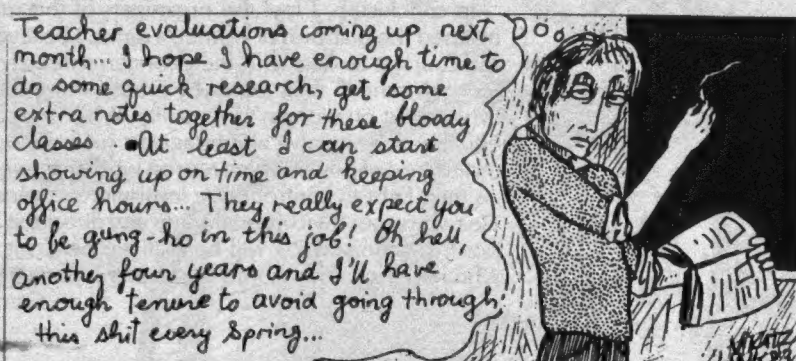 Teacher evaluations coming up next
month... I hope I have enough time to
do some quick research, get some
extra notes together for these bloody
classes. At least I can start
showing up on time and keeping
office hours... They really expect you
to be gung-ho in this job! Oh hell,
another four years and I'll have
enough tenure to avoid going through
this shit every Spring...
M KATZ